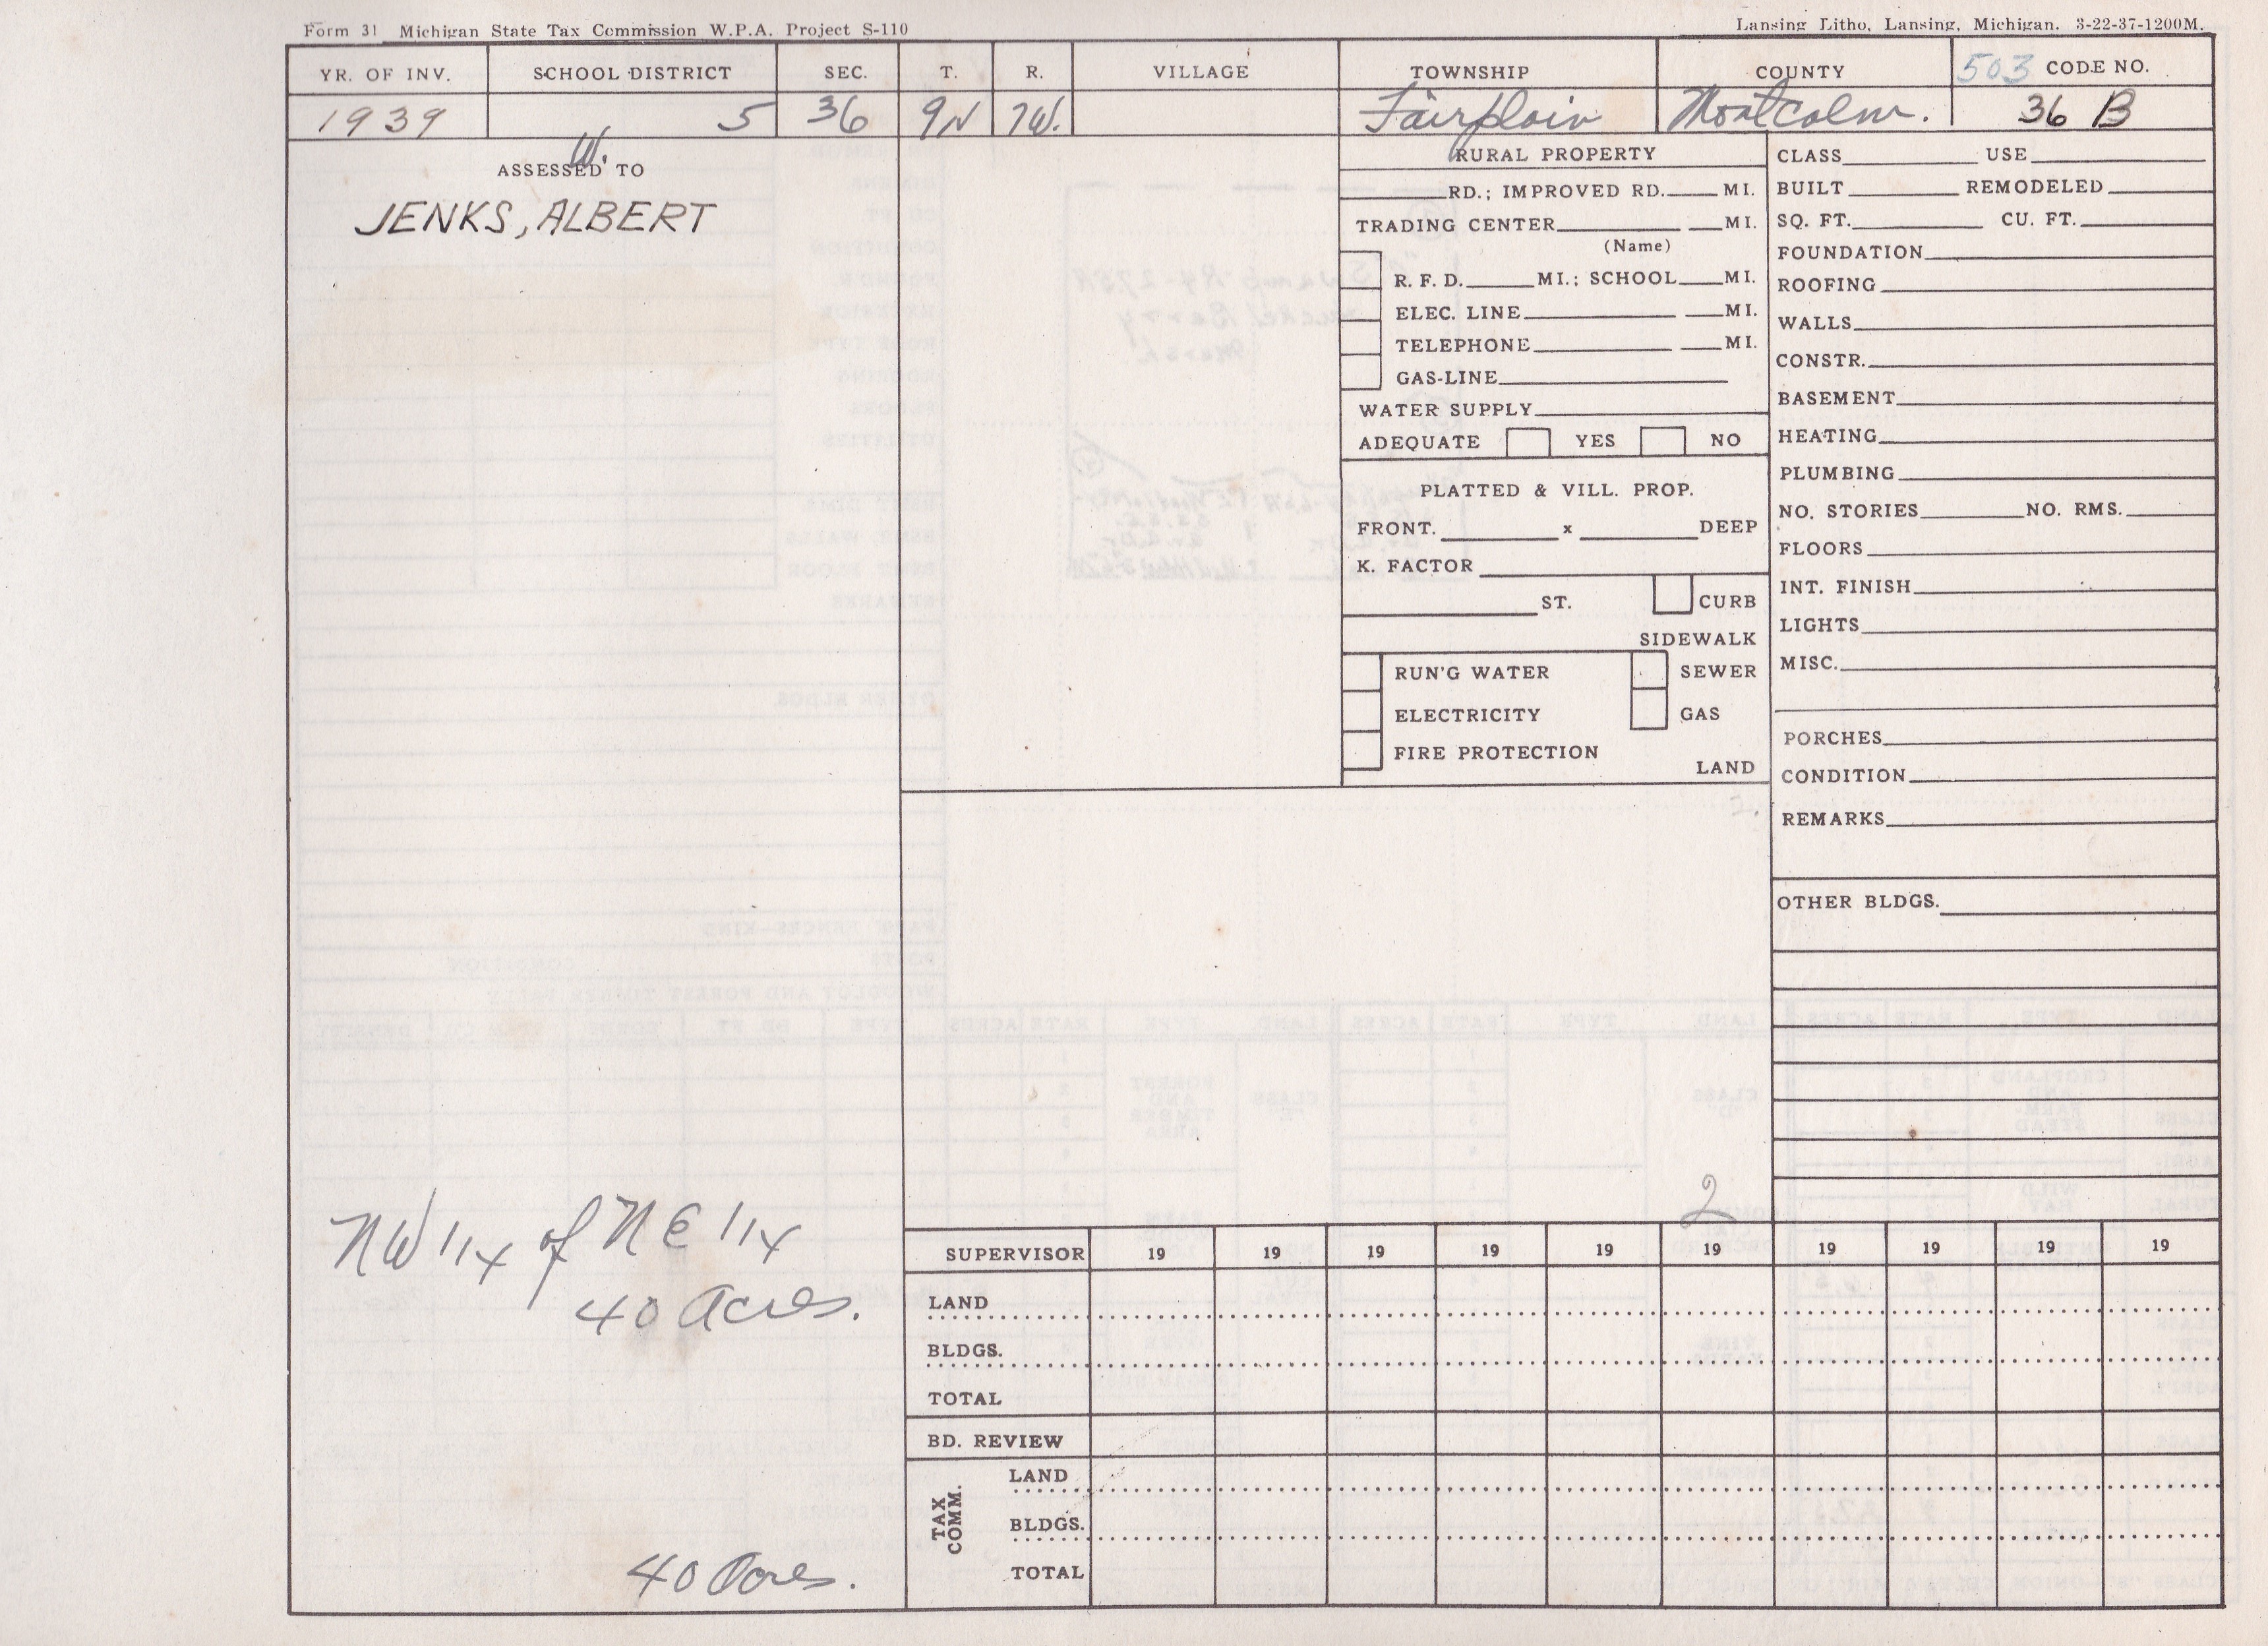 Form 31 Michigan State Tax Commission W.P.A. Project S-110
Lansing Litho, Lansing, Michigan. 3-22-37-1200M.
YR. OF INV. SCHOOL DISTRICT SEC. T. R. VILLAGE TOWNSHIP COUNTY 503 CODE NO.
1939 5 36 9N 7W. Fairplain Montcalm. 36 B
W.
ASSESSED TO
JENKS, ALBERT
NW 1/4 of NE 1/4
40 Acres.
40 Acres.
RURAL PROPERTY
RD.; IMPROVED RD. MI.
TRADING CENTER MI.
(Name)
R. F. D. MI.; SCHOOL MI.
ELEC. LINE MI.
TELEPHONE MI.
GAS-LINE
WATER SUPPLY
ADEQUATE YES NO
PLATTED & VILL. PROP.
FRONT. x DEEP
K. FACTOR
ST. CURB
SIDEWALK
RUN'G WATER SEWER
ELECTRICITY GAS
FIRE PROTECTION
LAND
CLASS USE
BUILT REMODELED
SQ. FT. CU. FT.
FOUNDATION
ROOFING
WALLS
CONSTR.
BASEMENT
HEATING
PLUMBING
NO. STORIES NO. RMS.
FLOORS
INT. FINISH
LIGHTS
MISC.
PORCHES
CONDITION
REMARKS
OTHER BLDGS.
2
SUPERVISOR 19 19 19 19 19 19 19 19 19 19
LAND
BLDGS.
TOTAL
BD. REVIEW
TAX COMM.
LAND
BLDGS.
TOTAL